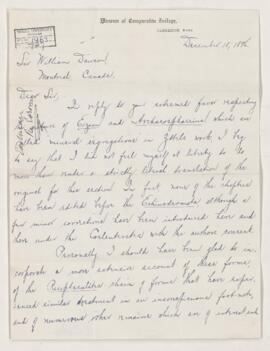 Museum of Comparative Zoology,
CAMBRIDGE, MASS.
December 18, 189
Sir William Dawson,
Montreal, Canada.
Dear Sir,
In reply to your esteemed favor respecting
of Eozoon and Archaeosphaerina which are
called mineral segregations in Zittel's work, I beg
to say that I did not feel myself at liberty to do
more than make a strictly literal translation of the
original for this section. In fact none of the chapters
have been edited before the Echinodermata, although a
few minor corrections have been introduced here and
there under the Coelenterates with the authors consent.
Personally I should have been glad to in-
corporate a more extensive account of these forms,
of the Receptaculites chain of forms that have
received similar treatment in an inconspicuous foot-note,
and of numerous other remains which are of interest and